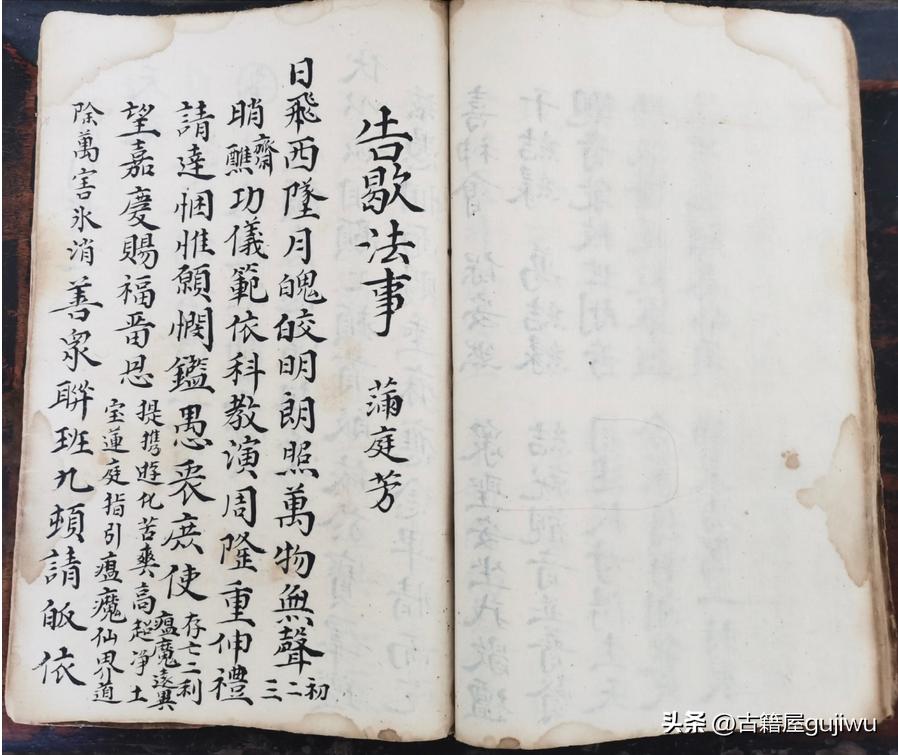 告歇法事 蒲庭芳
日飛西墜月魄皎明朗照萬物無聲初二三
齋醮功儀範依科教演周隆重伸禮
請達悃惟願憫鑑愚衷庶使存亡二利
瘟魔遠異
望嘉慶賜福恩提携遊化苦爽高超净土
宝蓮庭指引瘟魔仙界道
除萬害氷消善衆聨班九頓請皈依
头条 @古籍屋gujiwu